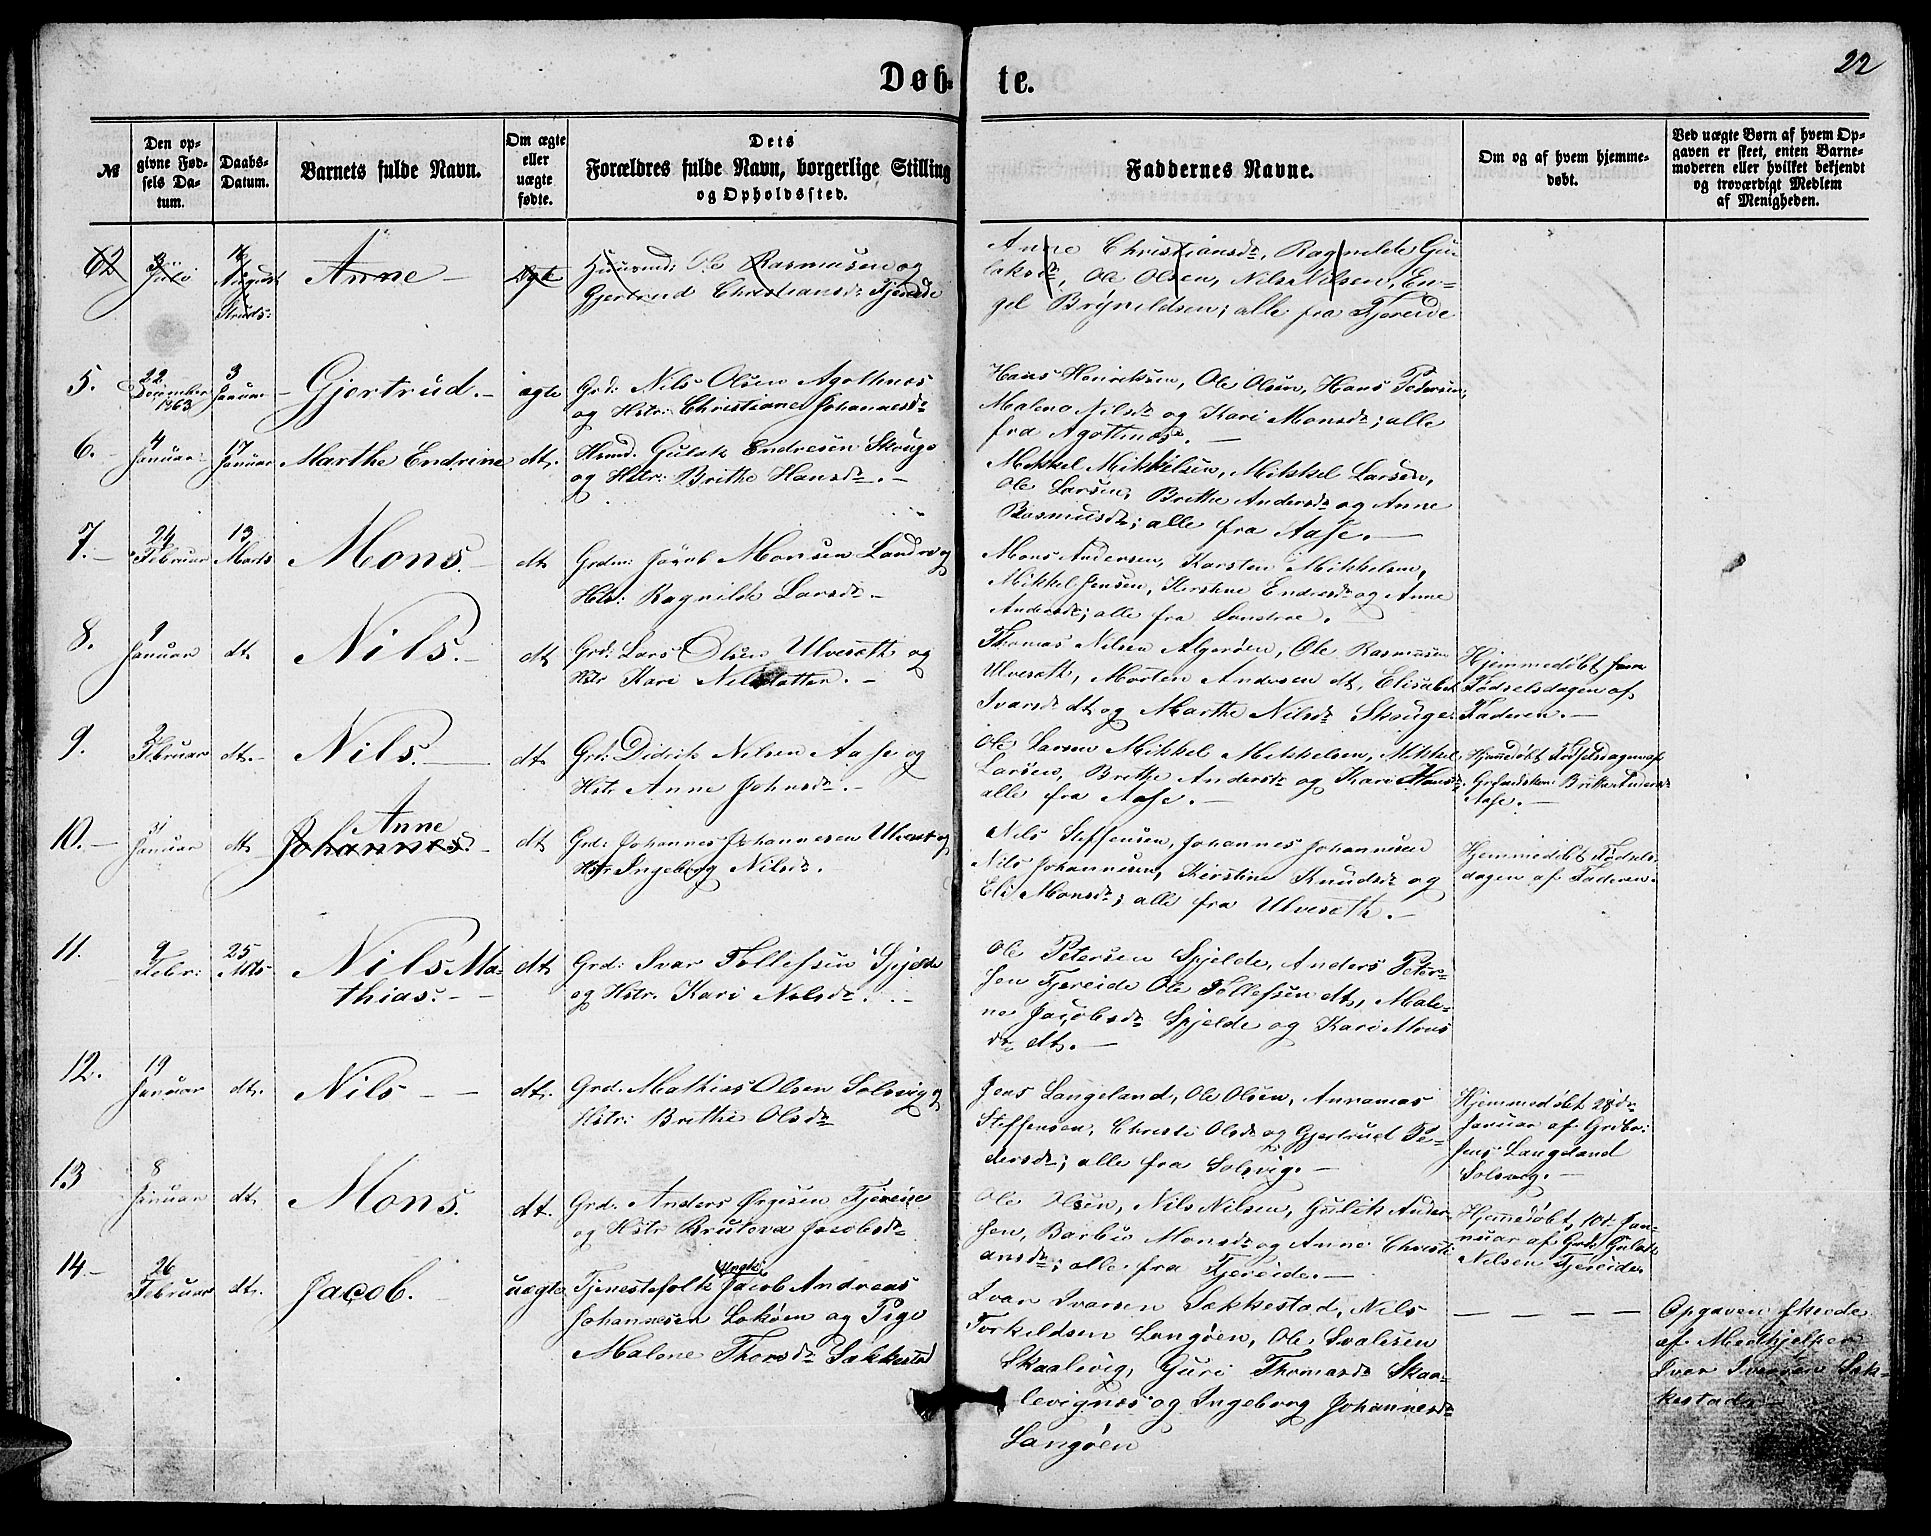 22
Døb-te.
№
Den op-
givne Fød-
sels Da-
tum.
Daabs-
Datum.
Barnets fulde Navn.
Om ægte
eller
uægte
fødte.
Dets
Forældres fulde Navn, borgerlige Stilling
og Opholdssted.
Faddernes Navne.
Om og af hvem hjemme-
døbt.
Ved uægte Børn af hvem Op-
gaven er skeet, enten Barne-
moderen eller hvilket bekjendt
og troværdigt Medlem
af Menigheden.
62
Juli
16
August
Anne
Ægte
Huusmd: Ole Rasmusen og
Gjertrud Christiansd: Fjereide
Anne Christiansdr, Ragnilde Gu-
laksdr, Ole Olsen, Nils Nilsen, En-
gel Brynildsen; alle fra Fjereide
5.
22
December
1863
3
Januar
Gjertrud.
ægte
Grd: Nils Olsen Agothnes
og Hstr: Christiane Johannesdr
Hans Henriksen, Ole Olsen, Hans Pedersen,
Malene Nilsdr og Kari Monsdr; alle
fra Agothnes.
6.
4
Januar
17
Januar
Marthe Endrine
dt.
Hmd. Gulak Endresen Skouge
og Hstr: Brithe Hansdr.
Mikkel Mikkelsen, Mikkel Larsen,
Ole Larsen, Brithe Andersdr og Anne
Rasmusdr; alle fra Aase.
7.
24
Februar
13
Marts
Mons.
dt
Grdm: Jacob Monsen Landro og
Hstr: Ragnilde Larsdr
Mons Andersen, Karsten Mikkelsen,
Mikkel Jensen, Kirstine Endresdr og Anne
Andersdr; alle fra Landroe.
8.
9
Januar
dt.
Nils.
dt
Grd: Lars Olsen Ulveseth og
Hstr Kari Nilsdatter.
Thomas Nilsen Algerøen, Ole Rasmusen
Ulveseth, Morten Andersen dt, Elisabet
Ivarsdr dt og Marthe Nilsdr Skouge
Hjemmedøbt paa
Fødselsdagen af
Faderen.
9.
3
Februar
dt.
Nils.
dt
Grd: Didrik Nilsen Aase og
Hstr Anne Johnsdr.
Ole Larsen Mikkel Mikkelsen, Mikkel
Larsen, Brithe Andersdr og Kari Hansdr
alle fra Aase.
Hjemmedøbt Fødselsdagen af
Brithe Andersdr
Aase.
10.
31
Januar
dt
Anne
Johannes.
dt
Grd: Johannes Johannesen Ulveset og
Hstr Ingeborg Nilsdr.
Nils Steffensen, Johannes Johannesen
Nils Johannesen, Kirstine Knudsdr og
Eli Monsdr; alle fra Ulveseth.
Hjemmedøbt Fødsels-
dagen af Faderen.
11.
9
Febr:
25
Mts
Nils Ma-
thias.
dt
Grd: Ivar Tollefsen Spjelde
og Hstr. Kari Nilsdr.
Ole Petersen Spjelde, Anders Peter-
sen Fjereide Ole Tollefsen dt, Male-
ne Jacobsdr Spjelde og Kari Mons
dr dt.
12.
19
Januar
dt.
Nils
dt.
Grd. Mathias Olsen Solsvig og
Hstr: Brithe Olsdr
Jens Langeland, Ole Olsen, Annanias
Steffensen, Christi Olsdr og Gjertrud Pe-
dersdr; alle fra Solsvig.
Hjemmedøbt 28de
Januar af Grdbr:
Jens Langeland
Solsvig.
13
8
Januar
dt.
Mons.
dt.
Grd. Anders Ørjesen Fjereide
og Hstr Jacobsdr
Ole Olsen, Nils Nilsen, Gulak Ander-
sen, Barbro Monsdr og Anne Christi-
ansdr; alle fra Fjereide.
Hjemmedøbt, 10de Jan-
nuar af Grdr Gulak
Nilsen Fjereide
14
26
Februar
dt.
Jacob.
uægte
Ungk:
Tjenestefolk Jacob Andreas
Johannesen Lokøen og Pige
Malene Thorsdr Sækkestad
Ivar Ivarsen Sækkestad, Nils
Torkildsen Langøen, Ole Svalesen
Skaalevig, Guri Thomasdr Skaa-
levignes og Ingeborg Johannesdr
Langøen
Opgaven skeede
af Medhjelper
Iver Iversen Sæk-
kestad.